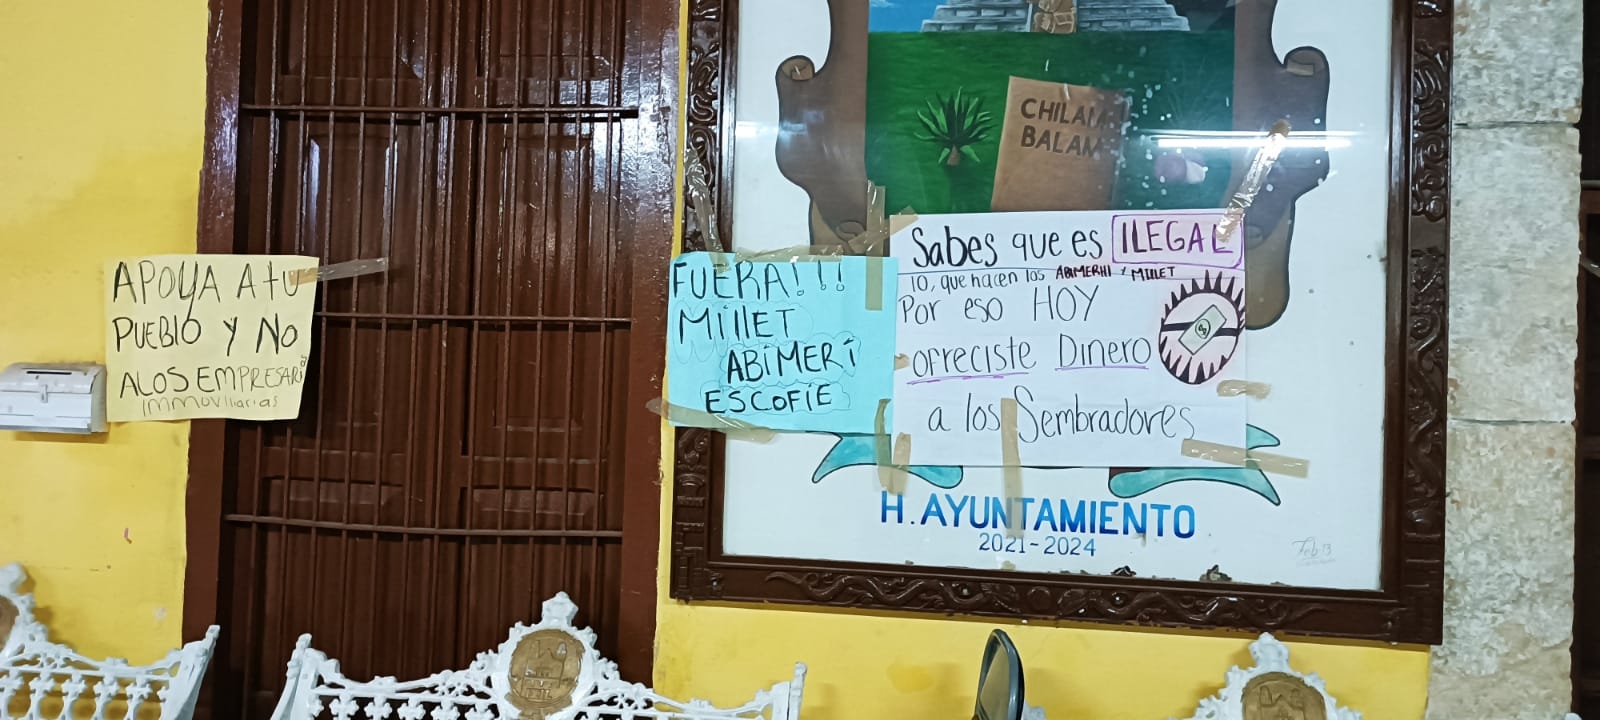 APOYA A tU
PUEBLO Y No
A LOS EMPRESARIOS
IMMOVIliarias
FUERA!!!
MillET
ABIMERí
ESCOFIE
CHILAM
BALAM
Sabes que es ILEGAL
lo, que hacen los ABIMERHI Y MIllET
Por eso HOY
ofreciste Dinero
a los Sembradores
H. AYUNTAMIENTO
2021-2024